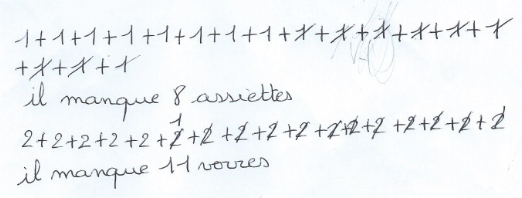 1+1+1+1+1+1+1+1+1+1+1+1+1+1
+1+1+1
il manque 8 assiettes
1
2+2+2+2+2+2+2+2+2+2+2+2+2+2+2+2+2
il manque 11 verres